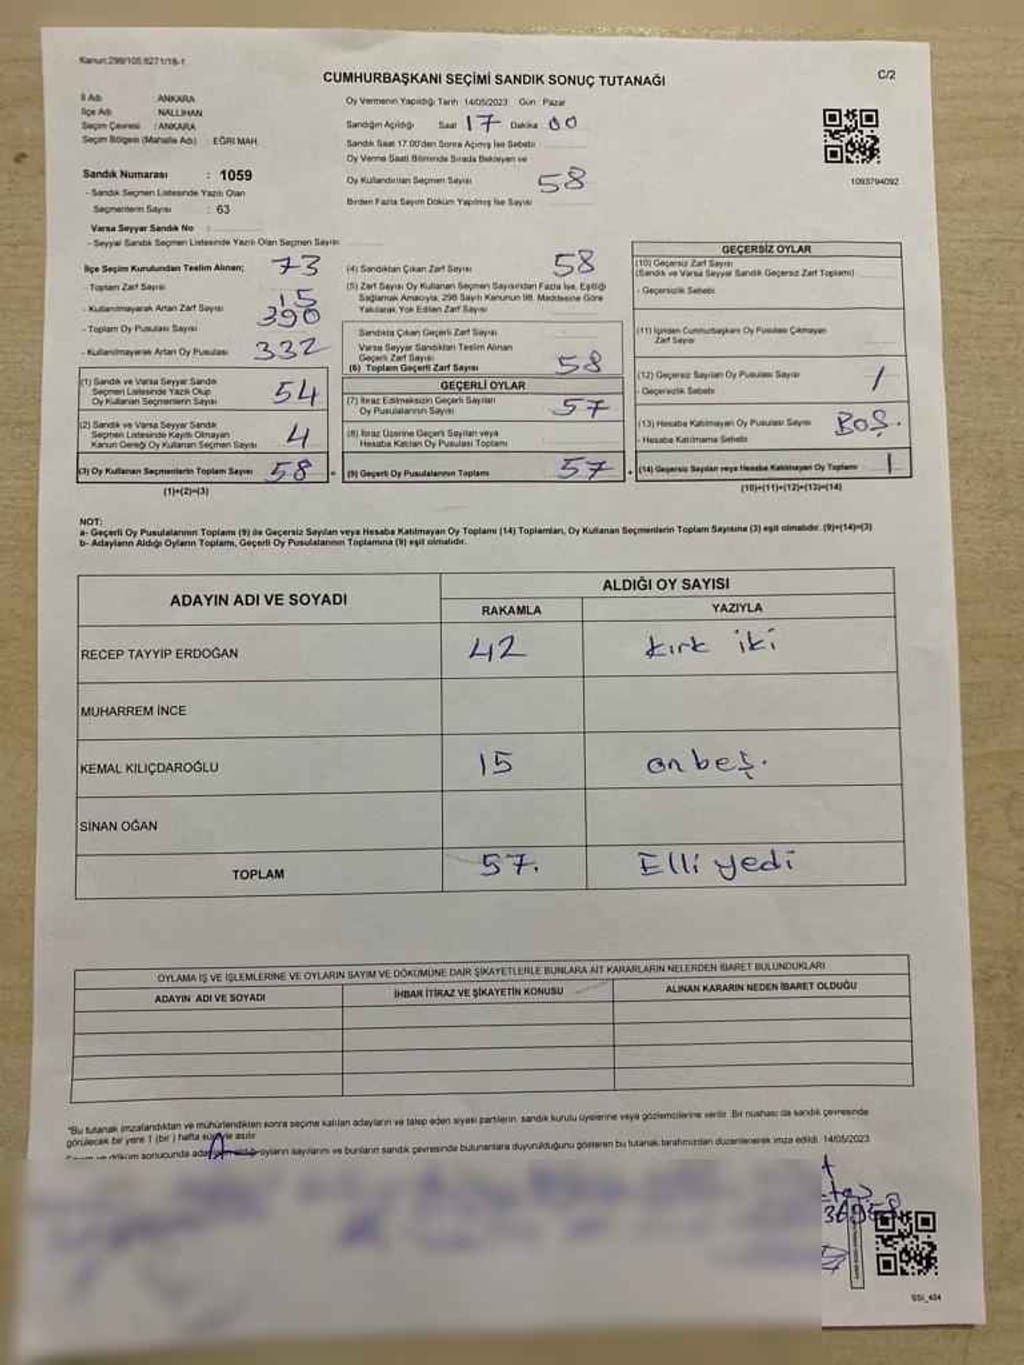 Kanun:298/105,6271/18-1
CUMHURBAŞKANI SEÇİMİ SANDIK SONUÇ TUTANAĞI
C/2
İl Adı : ANKARA
İlçe Adı : NALLIHAN
Seçim Çevresi : ANKARA
Seçim Bölgesi (Mahalle Adı) EĞRİ MAH.
Sandık Numarası : 1059
- Sandık Seçmen Listesinde Yazılı Olan
Seçmenlerin Sayısı : 63
Varsa Seyyar Sandık No
- Seyyar Sandık Seçmen Listesinde Yazılı Olan Seçmen Sayısı
Oy Vermenin Yapıldığı Tarih 14/05/2023 Gün Pazar
Sandığın Açıldığı Saat 17 Dakika 00
Sandık Saat 17.00'den Sonra Açılmış İse Sebebi
Oy Verme Saati Bitiminde Sırada Bekleyen ve
Oy Kullandırılan Seçmen Sayısı 58
Birden Fazla Sayım Döküm Yapılmış İse Sayısı
1093794092
İlçe Seçim Kurulundan Teslim Alınan; 73
- Toplam Zarf Sayısı
- Kullanılmayarak Artan Zarf Sayısı 15
- Toplam Oy Pusulası Sayısı 390
- Kullanılmayarak Artan Oy Pusulası 332
(1) Sandık ve Varsa Seyyar Sandık
Seçmen Listesinde Yazılı Olup
Oy Kullanan Seçmenlerin Sayısı 54
(2) Sandık ve Varsa Seyyar Sandık
Seçmen Listesinde Kayıtlı Olmayan
Kanun Gereği Oy Kullanan Seçmen Sayısı 4
(3) Oy Kullanan Seçmenlerin Toplam Sayısı 58 =
(1)+(2)=(3)
(4) Sandıktan Çıkan Zarf Sayısı 58
(5) Zarf Sayısı Oy Kullanan Seçmen Sayısından Fazla İse, Eşitliği
Sağlamak Amacıyla, 298 Sayılı Kanunun 98. Maddesine Göre
Yakılarak Yok Edilen Zarf Sayısı
Sandıkta Çıkan Geçerli Zarf Sayısı
Varsa Seyyar Sandıktan Teslim Alınan
Geçerli Zarf Sayısı
(6) Toplam Geçerli Zarf Sayısı 58
GEÇERLİ OYLAR
(7) İtiraz Edilmeksizin Geçerli Sayılan
Oy Pusulalarının Sayısı 57
(8) İtiraz Üzerine Geçerli Sayılan veya
Hesaba Katılan Oy Pusulası Toplamı
(9) Geçerli Oy Pusulalarının Toplamı 57 +
GEÇERSİZ OYLAR
(10) Geçersiz Zarf Sayısı
(Sandık ve Varsa Seyyar Sandık Geçersiz Zarf Toplamı)
- Geçersizlik Sebebi
(11) İçinden Cumhurbaşkanı Oy Pusulası Çıkmayan
Zarf Sayısı
(12) Geçersiz Sayılan Oy Pusulası Sayısı 1
- Geçersizlik Sebebi
(13) Hesaba Katılmayan Oy Pusulası Sayısı BOŞ.
- Hesaba Katılmama Sebebi
(14) Geçersiz Sayılan veya Hesaba Katılmayan Oy Toplamı 1
(10)+(11)+(12)+(13)=(14)
NOT:
a- Geçerli Oy Pusulalarının Toplamı (9) ile Geçersiz Sayılan veya Hesaba Katılmayan Oy Toplamı (14) Toplamları, Oy Kullanan Seçmenlerin Toplam Sayısına (3) eşit olmalıdır. (9)+(14)=(3)
b- Adayların Aldığı Oyların Toplamı, Geçerli Oy Pusulalarının Toplamına (9) eşit olmalıdır.
ADAYIN ADI VE SOYADI
ALDIĞI OY SAYISI
RAKAMLA YAZIYLA
RECEP TAYYİP ERDOĞAN 42 kırk iki
MUHARREM İNCE
KEMAL KILIÇDAROĞLU 15 on beş.
SİNAN OĞAN
TOPLAM 57. Elli yedi
OYLAMA İŞ VE İŞLEMLERİNE VE OYLARIN SAYIM VE DÖKÜMÜNE DAİR ŞİKAYETLERLE BUNLARA AİT KARARLARIN NELERDEN İBARET BULUNDUKLARI
ADAYIN ADI VE SOYADI İHBAR İTİRAZ VE ŞİKAYETİN KONUSU ALINAN KARARIN NEDEN İBARET OLDUĞU
*Bu tutanak imzalandıktan ve mühürlendikten sonra seçime katılan adayların ve talep eden siyasi partilerin, sandık kurulu üyelerine veya gözlemcilerine verilir. Bir nushası da sandık çevresinde
görülecek bir yere 1 (bir) hafta süreyle asılır
döküm sonucunda oyların sayılarını ve bunların sandık çevresinde bulunanlara duyurulduğunu gösteren bu tutanak tarafımızdan düzenlenerek imza edildi. 14/05/2023
SSI_404